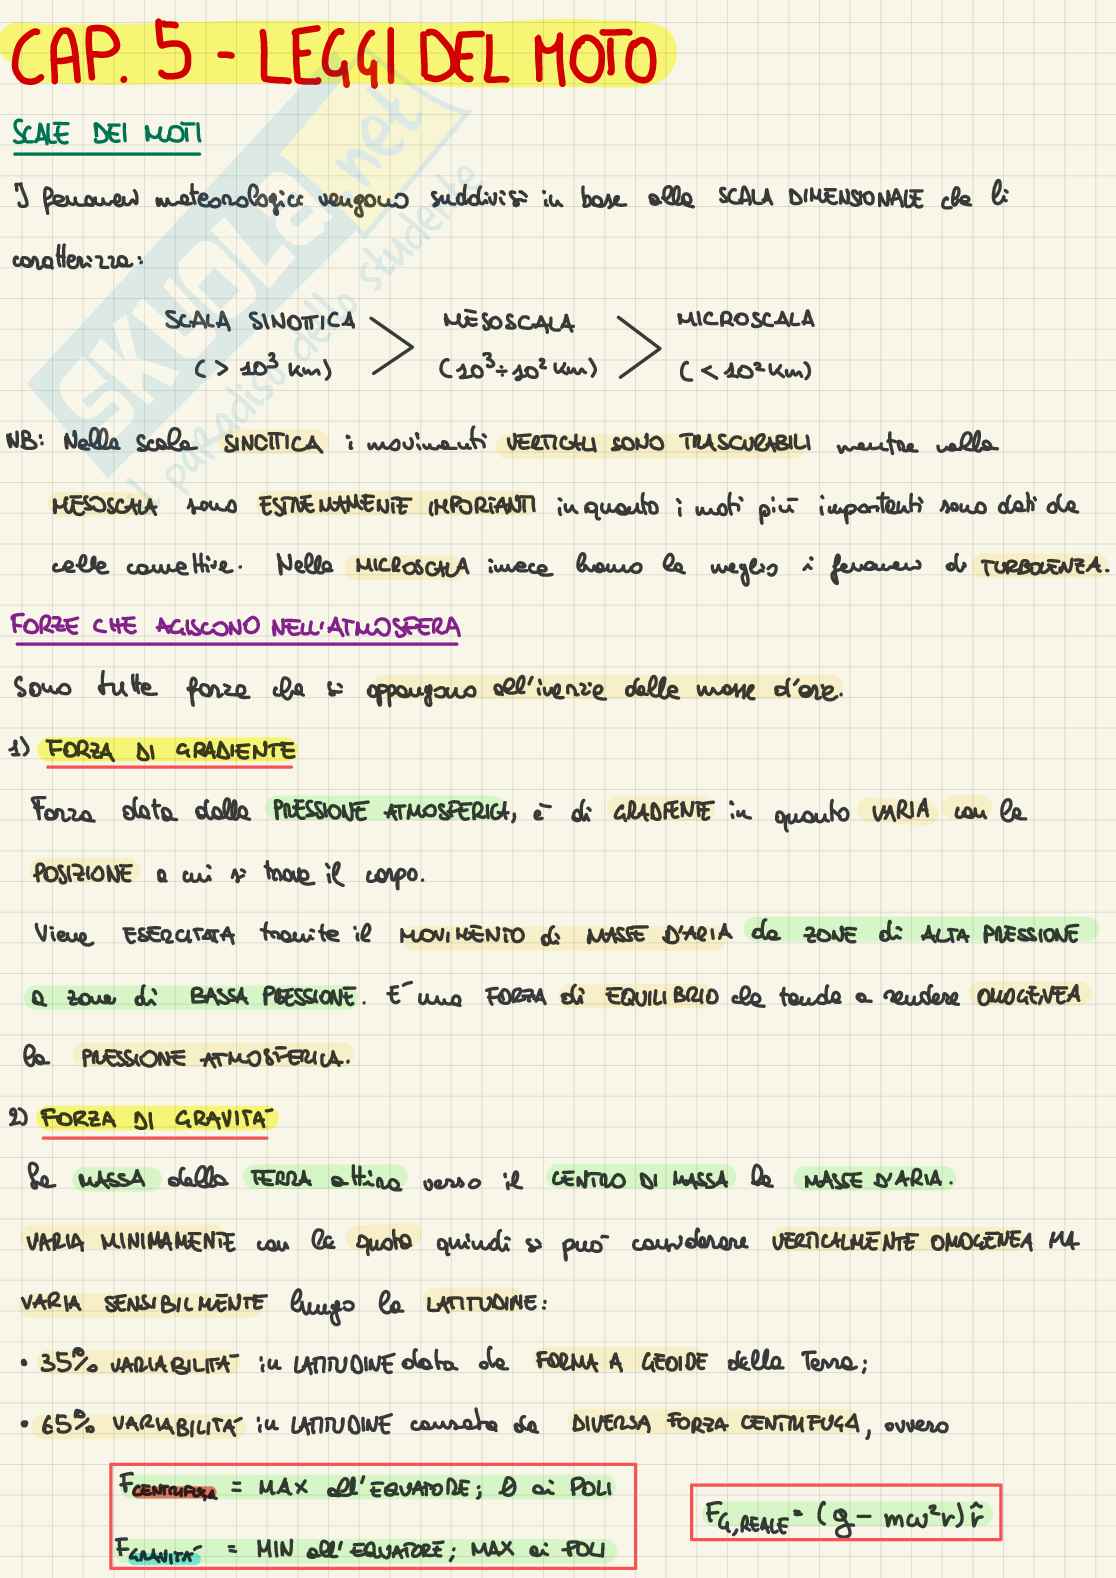 CAP. 5 - LEGGI DEL MOTO
SCALE DEI MOTI
I fenomeni meteorologici vengono suddivisi in base alla SCALA DIMENSIONALE che li
caratterizza:
SCALA SINOTTICA > MESOSCALA > MICROSCALA
(> 10³ Km) (10³ ÷ 10² Km) (< 10² Km)
NB: Nella scala SINOTTICA i movimenti VERTICALI SONO TRASCURABILI mentre nella
MESOSCALA sono ESTREMAMENTE IMPORTANTI in quanto i moti più importanti sono dati da
celle convettive. Nella MICROSCALA invece hanno la meglio i fenomeni di TURBOLENZA.
FORZE CHE AGISCONO NELL'ATMOSFERA
Sono tutte forze che si oppongono all'inerzia delle masse d'aria.
1) FORZA DI GRADIENTE
Forza data dalla PRESSIONE ATMOSFERICA, è di GRADIENTE in quanto VARIA con la
POSIZIONE a cui si trova il corpo.
Viene ESERCITATA tramite il MOVIMENTO di MASSE D'ARIA da ZONE di ALTA PRESSIONE
a zone di BASSA PRESSIONE. E' una FORZA di EQUILIBRIO che tende a rendere OMOGENEA
la PRESSIONE ATMOSFERICA.
2) FORZA DI GRAVITA'
La MASSA della TERRA attira verso il CENTRO DI MASSA le MASSE D'ARIA.
VARIA MINIMAMENTE con la quota quindi si può considerare VERTICALMENTE OMOGENEA MA
VARIA SENSIBILMENTE lungo la LATITUDINE:
• 35% VARIABILITA' in LATITUDINE data da FORMA A GEOIDE della Terra;
• 65% VARIABILITA' in LATITUDINE causata da DIVERSA FORZA CENTRIFUGA, ovvero
F CENTRIFUGA = MAX all'EQUATORE; 0 ai POLI
F GRAVITA' = MIN all'EQUATORE; MAX ai POLI
F G,REALE = (g - mω²r) r̂
SKUOLA.net
il paradiso dello studente